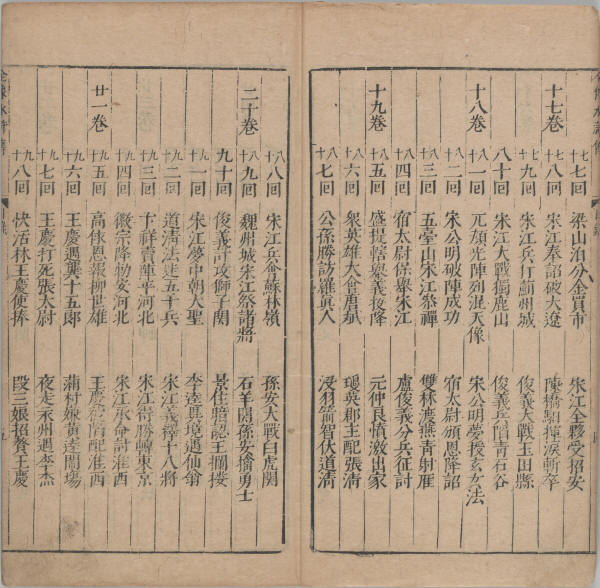 十七卷
七十七回 梁山泊分金買市 宋江全夥受招安
七十八回 宋江奉詔破大遼 陳橋驛揮淚斬卒
七十九回 宋江兵打薊州城 俊義大戰玉田縣
八十回 宋江大戰獨鹿山 俊義兵陷青石谷
十八卷
八十一回 兀顏光陣列混天像 宋公明夢授玄女法
八十二回 宋公明破陣成功 宿太尉頒恩降詔
八十三回 五臺山宋江參禪 雙林渡燕青射雁
八十四回 宿太尉保舉宋江 盧俊義分兵征討
十九卷
八十五回 盛提轄舉義投降 元仲良憤激出家
八十六回 衆英雄大會唐斌 瓊英郡主配張清
八十七回 公孫勝訪羅真人 沒羽箭智伏道清
八十八回 宋江兵會蘇林嶺 孫安大戰白虎關
二十卷
八十九回 魏州城宋江祭諸將 石羊關孫安擒勇士
九十回 俊義計攻獅子關 景住暗認玉欄樓
九十一回 宋江夢中朝大聖 李逵異境遇仙翁
九十二回 道清法迷五千兵 宋江義釋十八將
九十三回 卞祥賣陣平河北 宋江得勝轉東京
九十四回 徽宗降勅安河北 宋江承命討淮西
廿一卷
九十五回 高俅恩報柳世雄 王慶被陷配淮西
九十六回 王慶遇龔十五郎 滿村嫌黃達鬧場
九十七回 王慶打死張太尉 夜走永州遇李杰
九十八回 快活林王慶使捧 段三娘招贅王慶